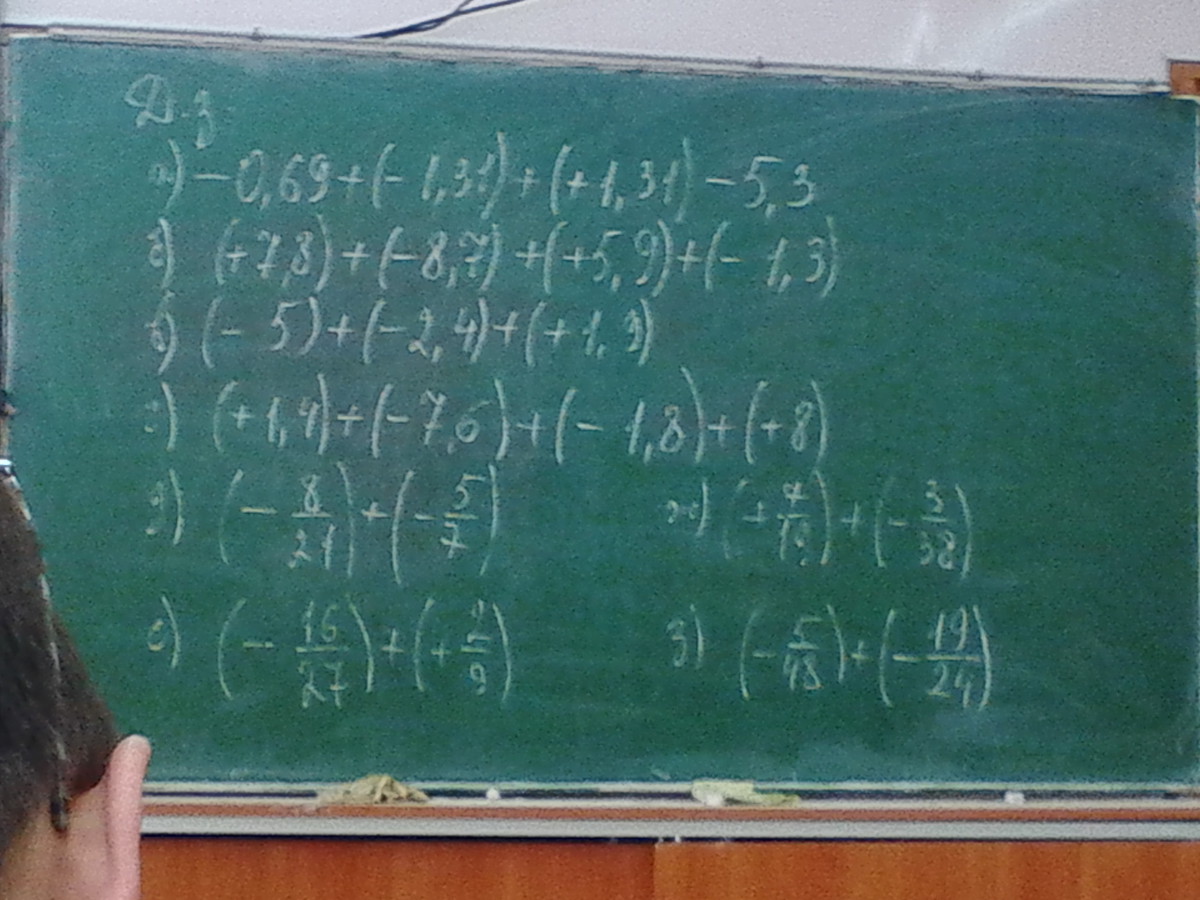 Д.з
а) -0,69+(-1,31)+(+1,31)-5,3
б) (+7,8)+(-8,7)+(+5,9)+(-1,3)
в) (-5)+(-2,4)+(+1,9)
г) (+1,4)+(-7,6)+(-1,8)+(+8)
д) (-8/21)+(-5/7) ж) (+4/19)+(-3/38)
е) (-16/27)+(+2/9) з) (-5/48)+(-19/24)